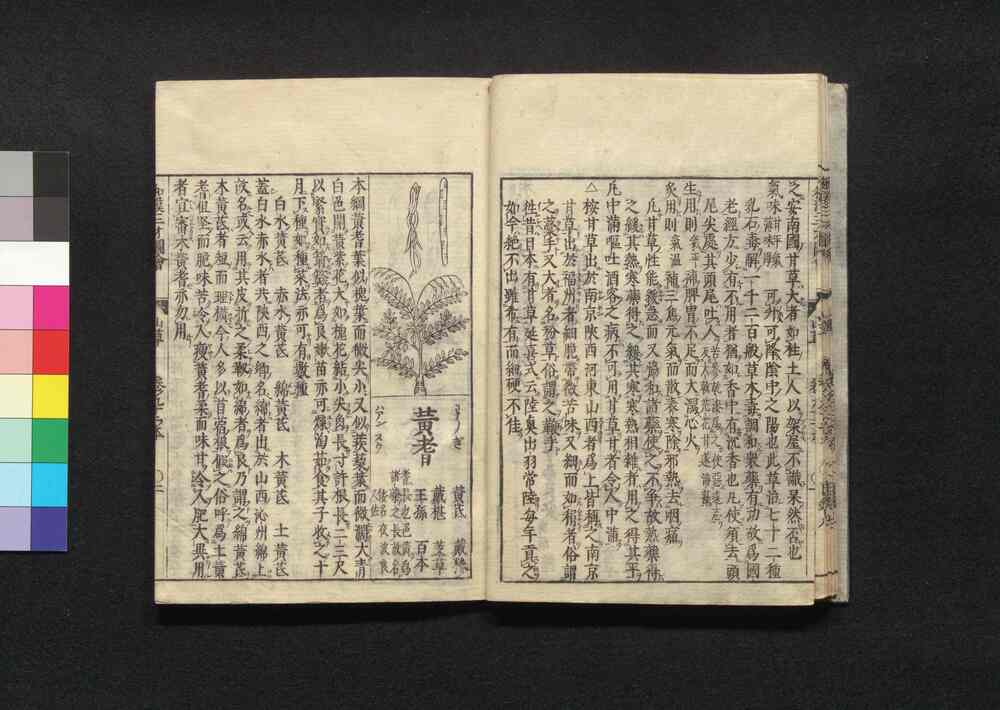 之安南國甘草大者如柱土人以架屋不識果然否也
氣味甘平 可升可降陰中之陽也此草治七十二種
乳石毒解一千二百般草木毒調和衆藥有功故爲國
老經方少有不用者猶如香中有沉香也凡使須去頭
尾尖處其頭尾吐人
生用則氣平補脾胃不足而大瀉心火
炙用則氣温補三焦元氣而散表寒除邪熱去咽痛
凡甘草性能緩急而又協和諸藥使之不爭故熱藥得
之緩其熱寒藥得之緩其寒寒熱相雜者用之得其平
凡中滿嘔吐酒客之病不可用甘甘草者令人中滿
△按甘草出於南京陝西河東山西者爲上皆稱之南京
甘草出於福州者細脆帶微苦味又細而如梢者俗謂
之藁手又大者名粉草俗謂之
徃昔日本有甘草延喜式云陸奥出羽常陸毎年貢之
如今絶不出雖希有而細硬不佳
黃耆
わうぎ
ハアン スウ
黃芪 戴糝
戴椹 芰草
王孫 百本
耆長也色黃爲
諸藥之長故名
本綱黃耆葉似槐葉而微尖小又似蒺藜葉而微濶大青
白色開黃紫花大如槐花結小尖角長寸許根長二三尺
以緊實如箭簳者爲良嫩苗亦可煠淘茹食其子收之十
月下種如種菜法亦可有數種
白水黃芪 赤水黃芪 綿黃芪 木黃芪 土黃芪
蓋白水赤水者共陝西之鄉名綿者出於山西沁州綿上
故名或云用其皮折之柔靱如綿者爲良乃謂之綿黃芪
木黃芪者短而理橫今人多以苜蓿根假之俗呼爲土黃
耆但堅而脆味苦令人瘦黃耆柔而味甘令人肥大異用
者宜審木黃耆亦勿用